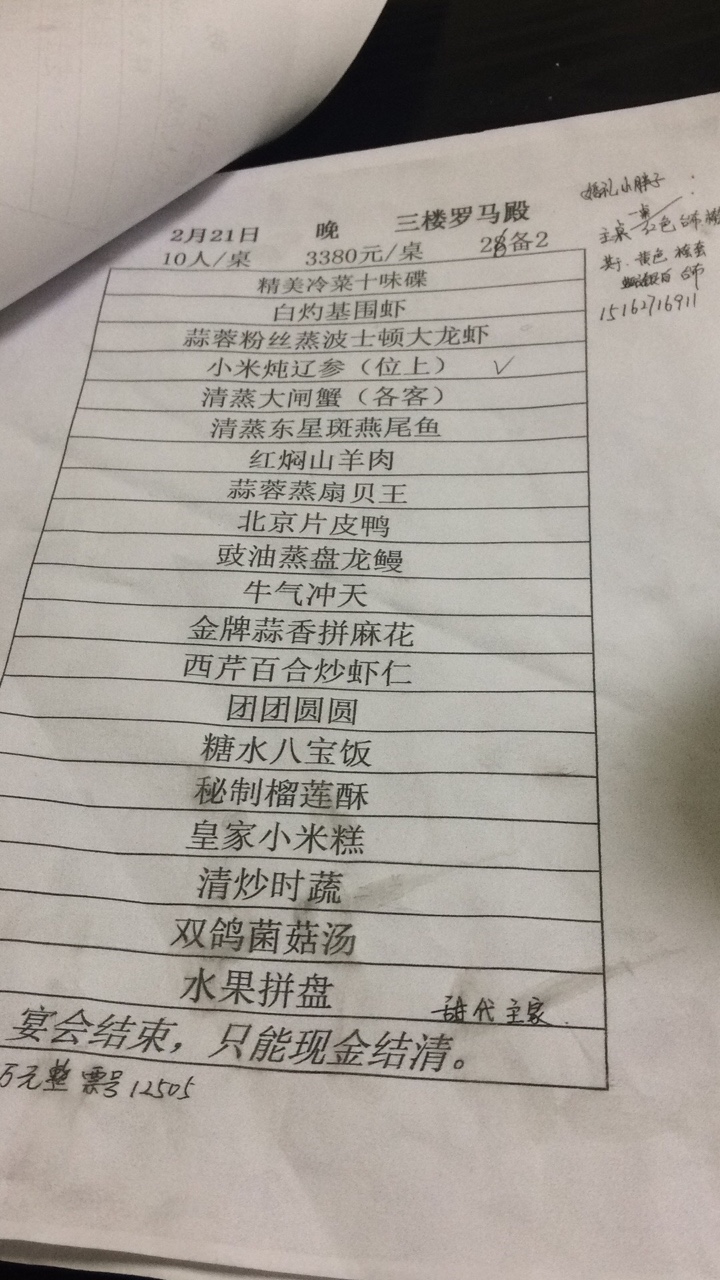 婚礼小胖子
2月21日 晚 三楼罗马殿
一桌
主桌 红色 台布
10人/桌 3380元/桌 28备2
黄色
台布
15162716911
精美冷菜十味碟
白灼基围虾
蒜蓉粉丝蒸波士顿大龙虾
小米炖辽参（位上） ✓
清蒸大闸蟹（各客）
清蒸东星斑燕尾鱼
红焖山羊肉
蒜蓉蒸扇贝王
北京片皮鸭
豉油蒸盘龙鳗
牛气冲天
金牌蒜香拼麻花
西芹百合炒虾仁
团团圆圆
糖水八宝饭
秘制榴莲酥
皇家小米糕
清炒时蔬
双鸽菌菇汤
水果拼盘
代主家
宴会结束，只能现金结清。
万元整 票号12505